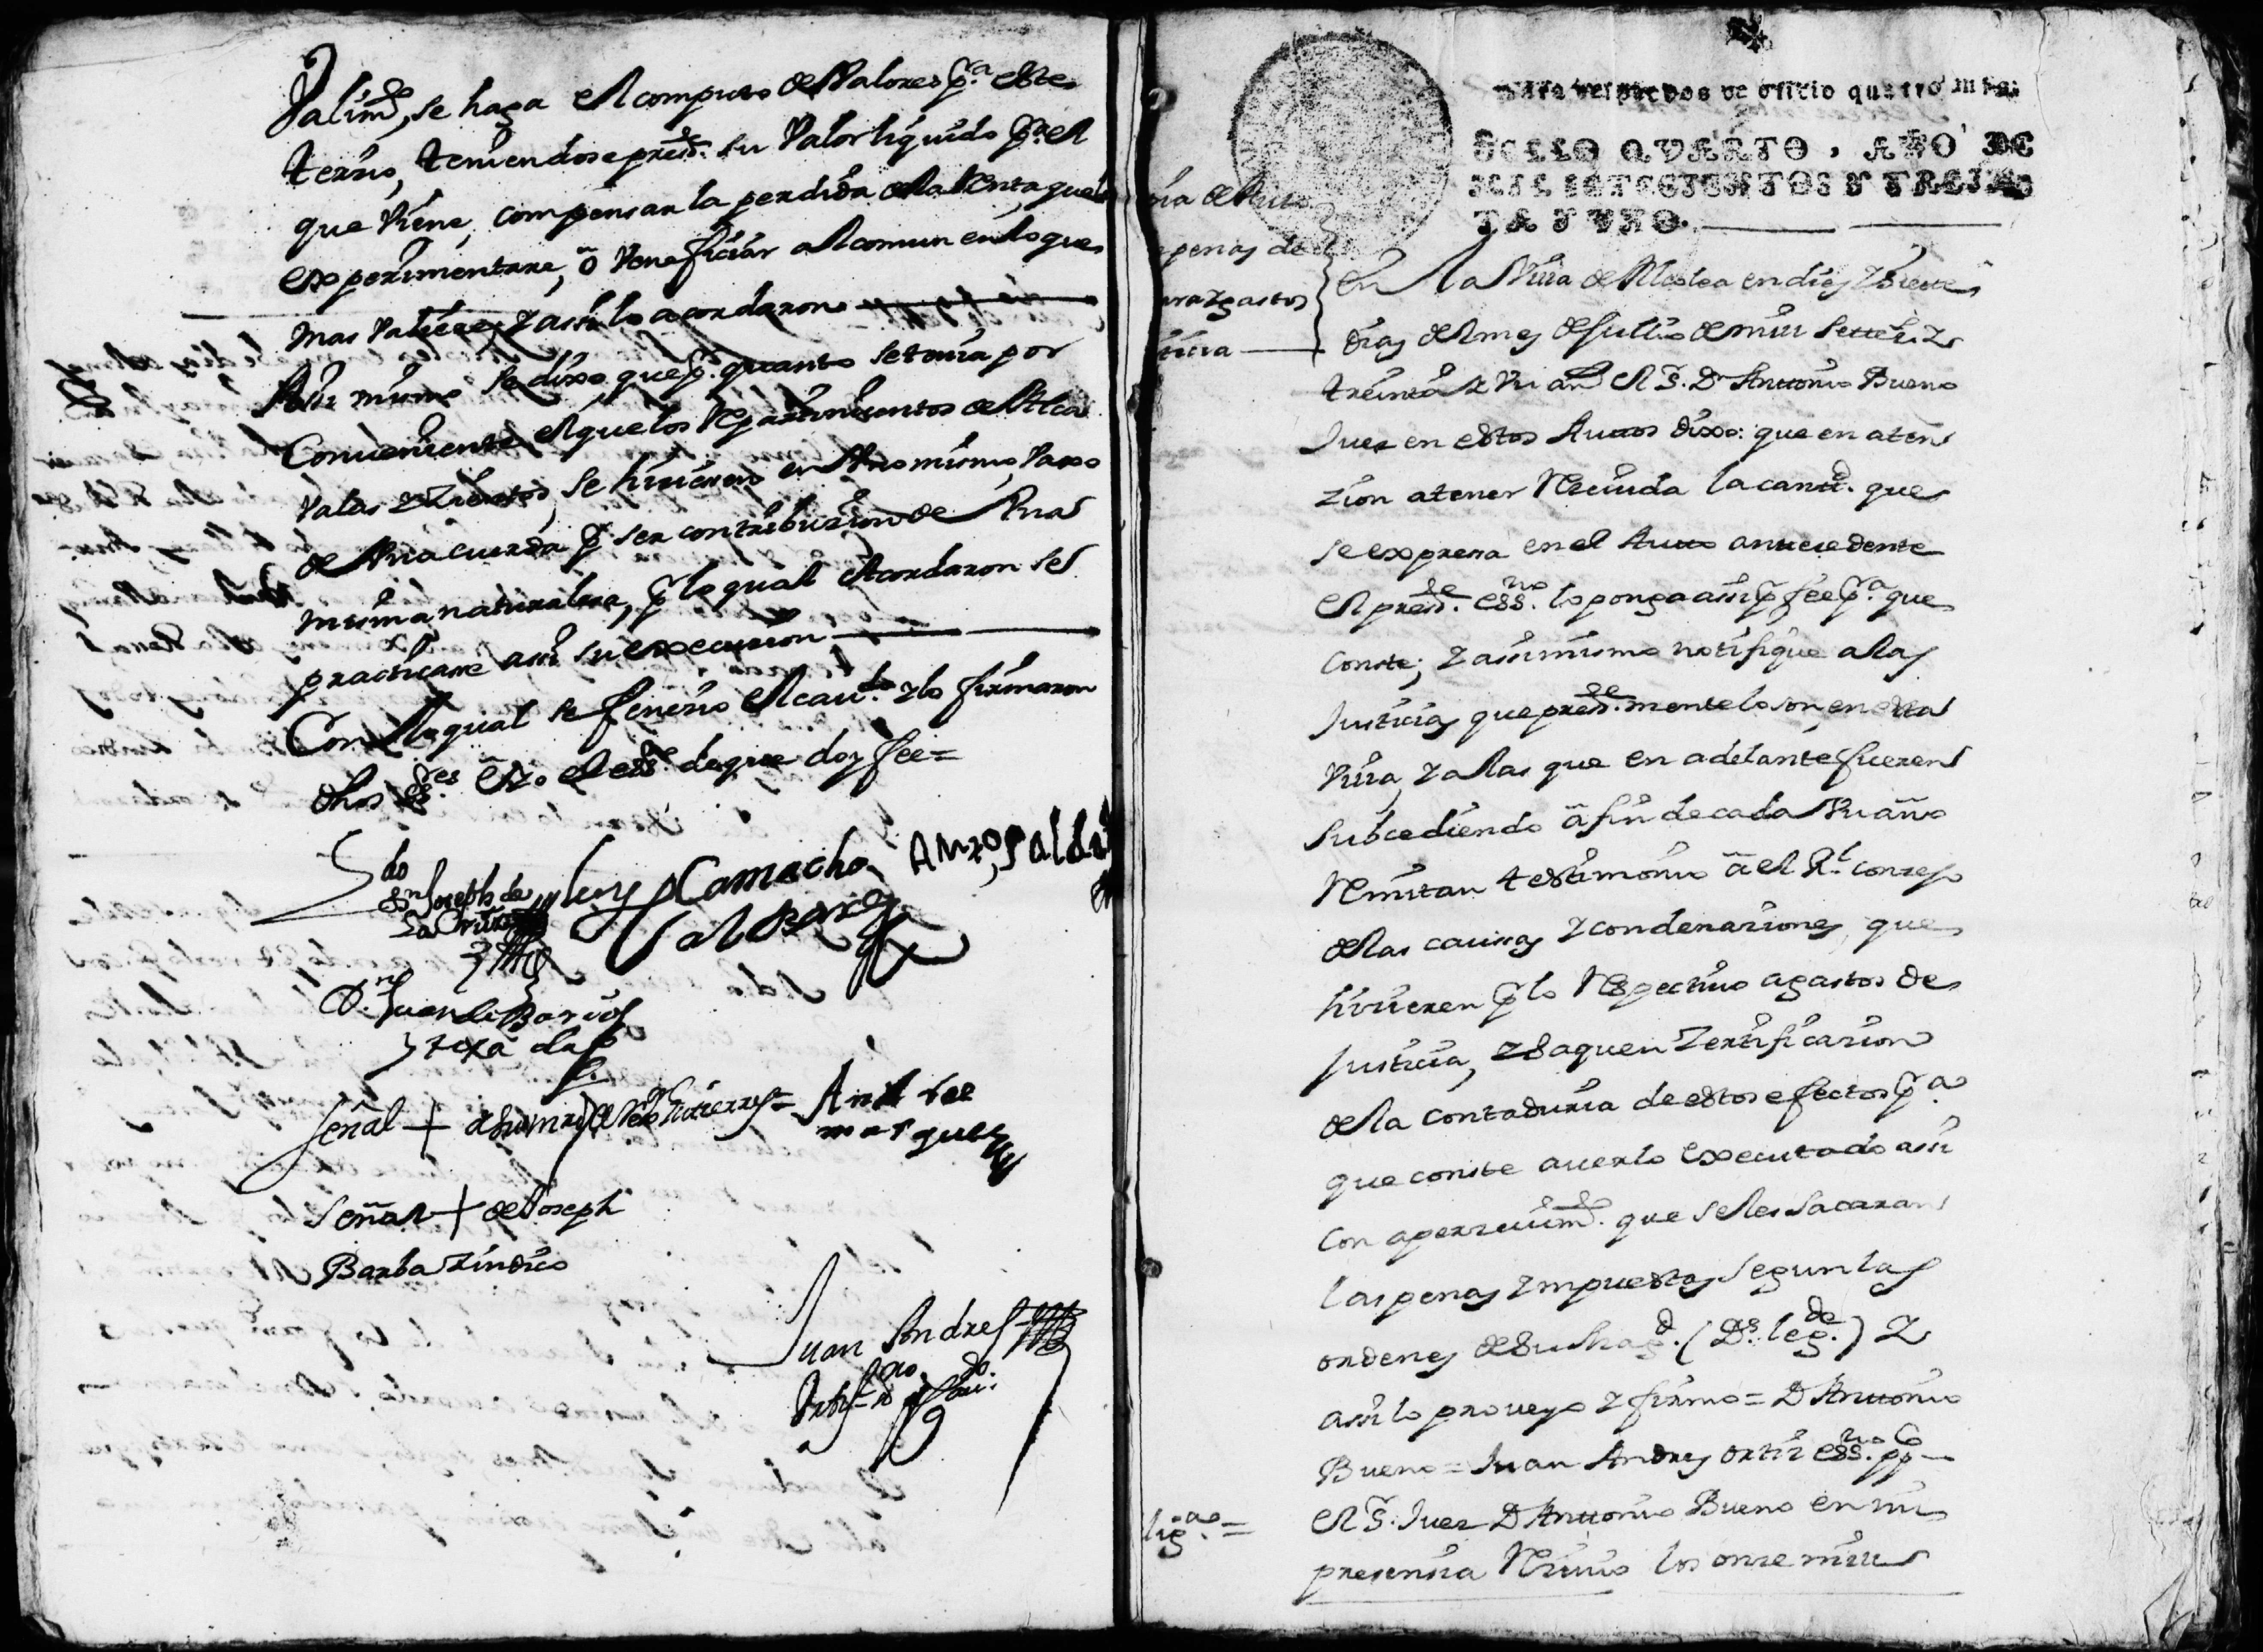 Valimdo, se haga el computo de Valores pa. este
terzio, teniendose presde. su Valor liquido pa. el
que Viene, compensar la perdida de la Renta que
experimentare, ô Veneficiar al comun en lo que
mas Valiere, y assi lo acordaron
Assi mismo se dixo que p. quanto se tenia por
Conueniente el que los Repartimientos de Alca
valas y Zientos, se hiziesen en Vno mismo, vaxo
de Vna cuerda p. ser contribuzion de Vna
misma naturaleza, p. lo qual acordaron se
practicase assi su execuzion
Con lo qual se fenezio el cauildo. y lo firmaron
dhos Sres. E yo el essno. de que doy fee =
Ldo
Dn Joseph de
La Luys Camacho Anzo, Saldà
Valbarez
Dn. Juan de Barios
y texada
señal + de Gutierrez = Andres
marques
Señal + de Joseph
Barba Zindico
Juan Andres
Ortiz
Para despachos de oficio quatro mrs.
SELLO QVARTO, AÑO DE
MIL SETECIENTOS Y TREIN
TA Y VNO.
penas de
ra y gastos
ticia
En la Villa de Alcolea en diez y nueve
dias del mes de Jullio de mill settesz. y
treinta y Vn año el S. Dn Anttonio Bueno
Juez en estos Auttos dixo: que en aten
zion a tener Reciuida la cantd. que
se expresa en el Autto antecedente
el presde. essno. lo ponga assi p. fee pa. que
Conste; y assimismo notifique a las
Justicias que presde.mente lo son en esta
Villa, y a las que en adelante fueren
Subcediendo â fin de cada Vn año
Remitan testimonio â el Rl. consejo
de las causas y condenaziones, que
hizieren p. lo Respectiuo a gastos de
Justicia, y saquen Zertificazion
de la contaduria de estos efectos pa.
que conste auerlo executado assi
Con aperzeuimdo. que se les sacaran
las penas ympuestas segun las
ordenes de su Magd. (Ds. legde.) Y
assi lo proveyo y firmo = D Anttonio
Bueno = Juan Andres Ortiz essno. ppco
lig.ao = El S. Juez D Anttonio Bueno en mi
presenzia Reziuio los onze mill